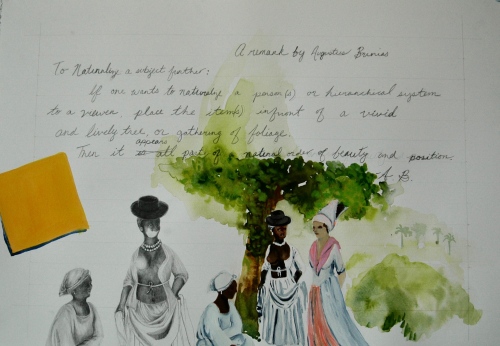 A remark by Augustus Brunias
To Naturalize a subject further:
If one wants to naturalize a person(s) or hierarchical system
to a viewer, place the item(s) infront of a vivid
and lively tree, or gathering of foliage.
appears
Then it all part of a natural order of beauty and position.
A. B.